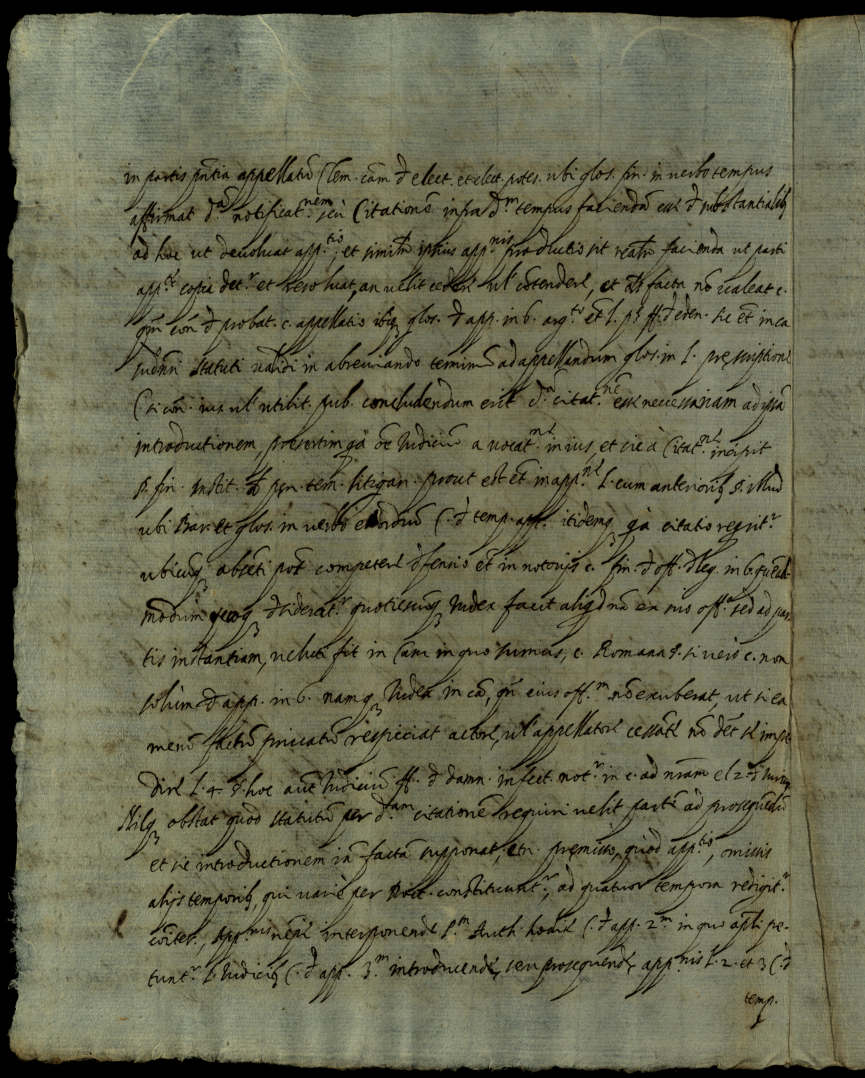 in partis pñtia appellatũ Clem. cãm đ elect. et elect. potes. ubi glos. fin. in verbo tempus
affirmat d.ã notificat.nem seù Citationẽ infra d.m tempus faciendã esse đ substantialib
ad hoc ut devoluat app.tio, et similr̃ ipsius app.nis productio sit facienda ut parti
copia det.r et resoluat, an velit cedere ul' cõtendere, et facta nõ valeat c.
đ probat. c. appellatio ibiq glos. đ app. in 6. arg.to et l. p.ª ff. đ eden. sic et̃ in ca
statuti validi in abreviando terminũ ad appellandum glos. in l. pręscriptione
C. si cõn. ius ul' utilit. pub. concludendum erit d.ã citat.nẽ esse necessariam ad ipsã
introductionem, presertim q̃a oẽ Iudiciũ a vocat.ne in ius, et sic à Citat.ne incipit
§. fin. Instit. đ pęn. tem. litigan. prout est et̃ in app.ne l. eum anteriorib §. illud
ubi Bar. et glos. in verbo exordiũ C. đ temp. app. itidemq q̃a citatio reqrit.r
ubicuq absẽti pot̃ competere đfensio et̃ in notorijs c. fin. đ off. đleg. in 6.
modum đsiderat.r quotiescuq Iudex facit aliqd nõ ex suo off.º sed ad par
tis instantiam, veluti fit in Cam in quo sumus, c. Romana §. si verò c. non
solùm đ app. in 6. namq Iudex in eo, eius off.m nõ exuberat, ut si ea
menũ factũ privatũ respiciat actore, ul' appellatore cessãte nõ det̃ se
dire l. 4. §. hoc aut̃ Iudiciũ ff. đ damn. infect. not.r in c. ad nr̃am el 2.º đ iureiur
Nilq obstat quòd statutũ per d.am citationẽ requiri velit partẽ ad prosequẽdũ
et sic introductionem iã factã supponat, etn. pręmisso, quòd app.tio, omissis
alijs temporib, qui variè per Doct. constituunt.r, ad quatuor tempora redigit.r
cõiter, app.nis nẽpe interponende p.m Auth. hodie C. đ app. 2.m in quo apli pe-
tunt.r l. Iudicib C. đ app. 3.m introducende, seu prosequende app.nis l. 2. et 3 C. đ
temp.